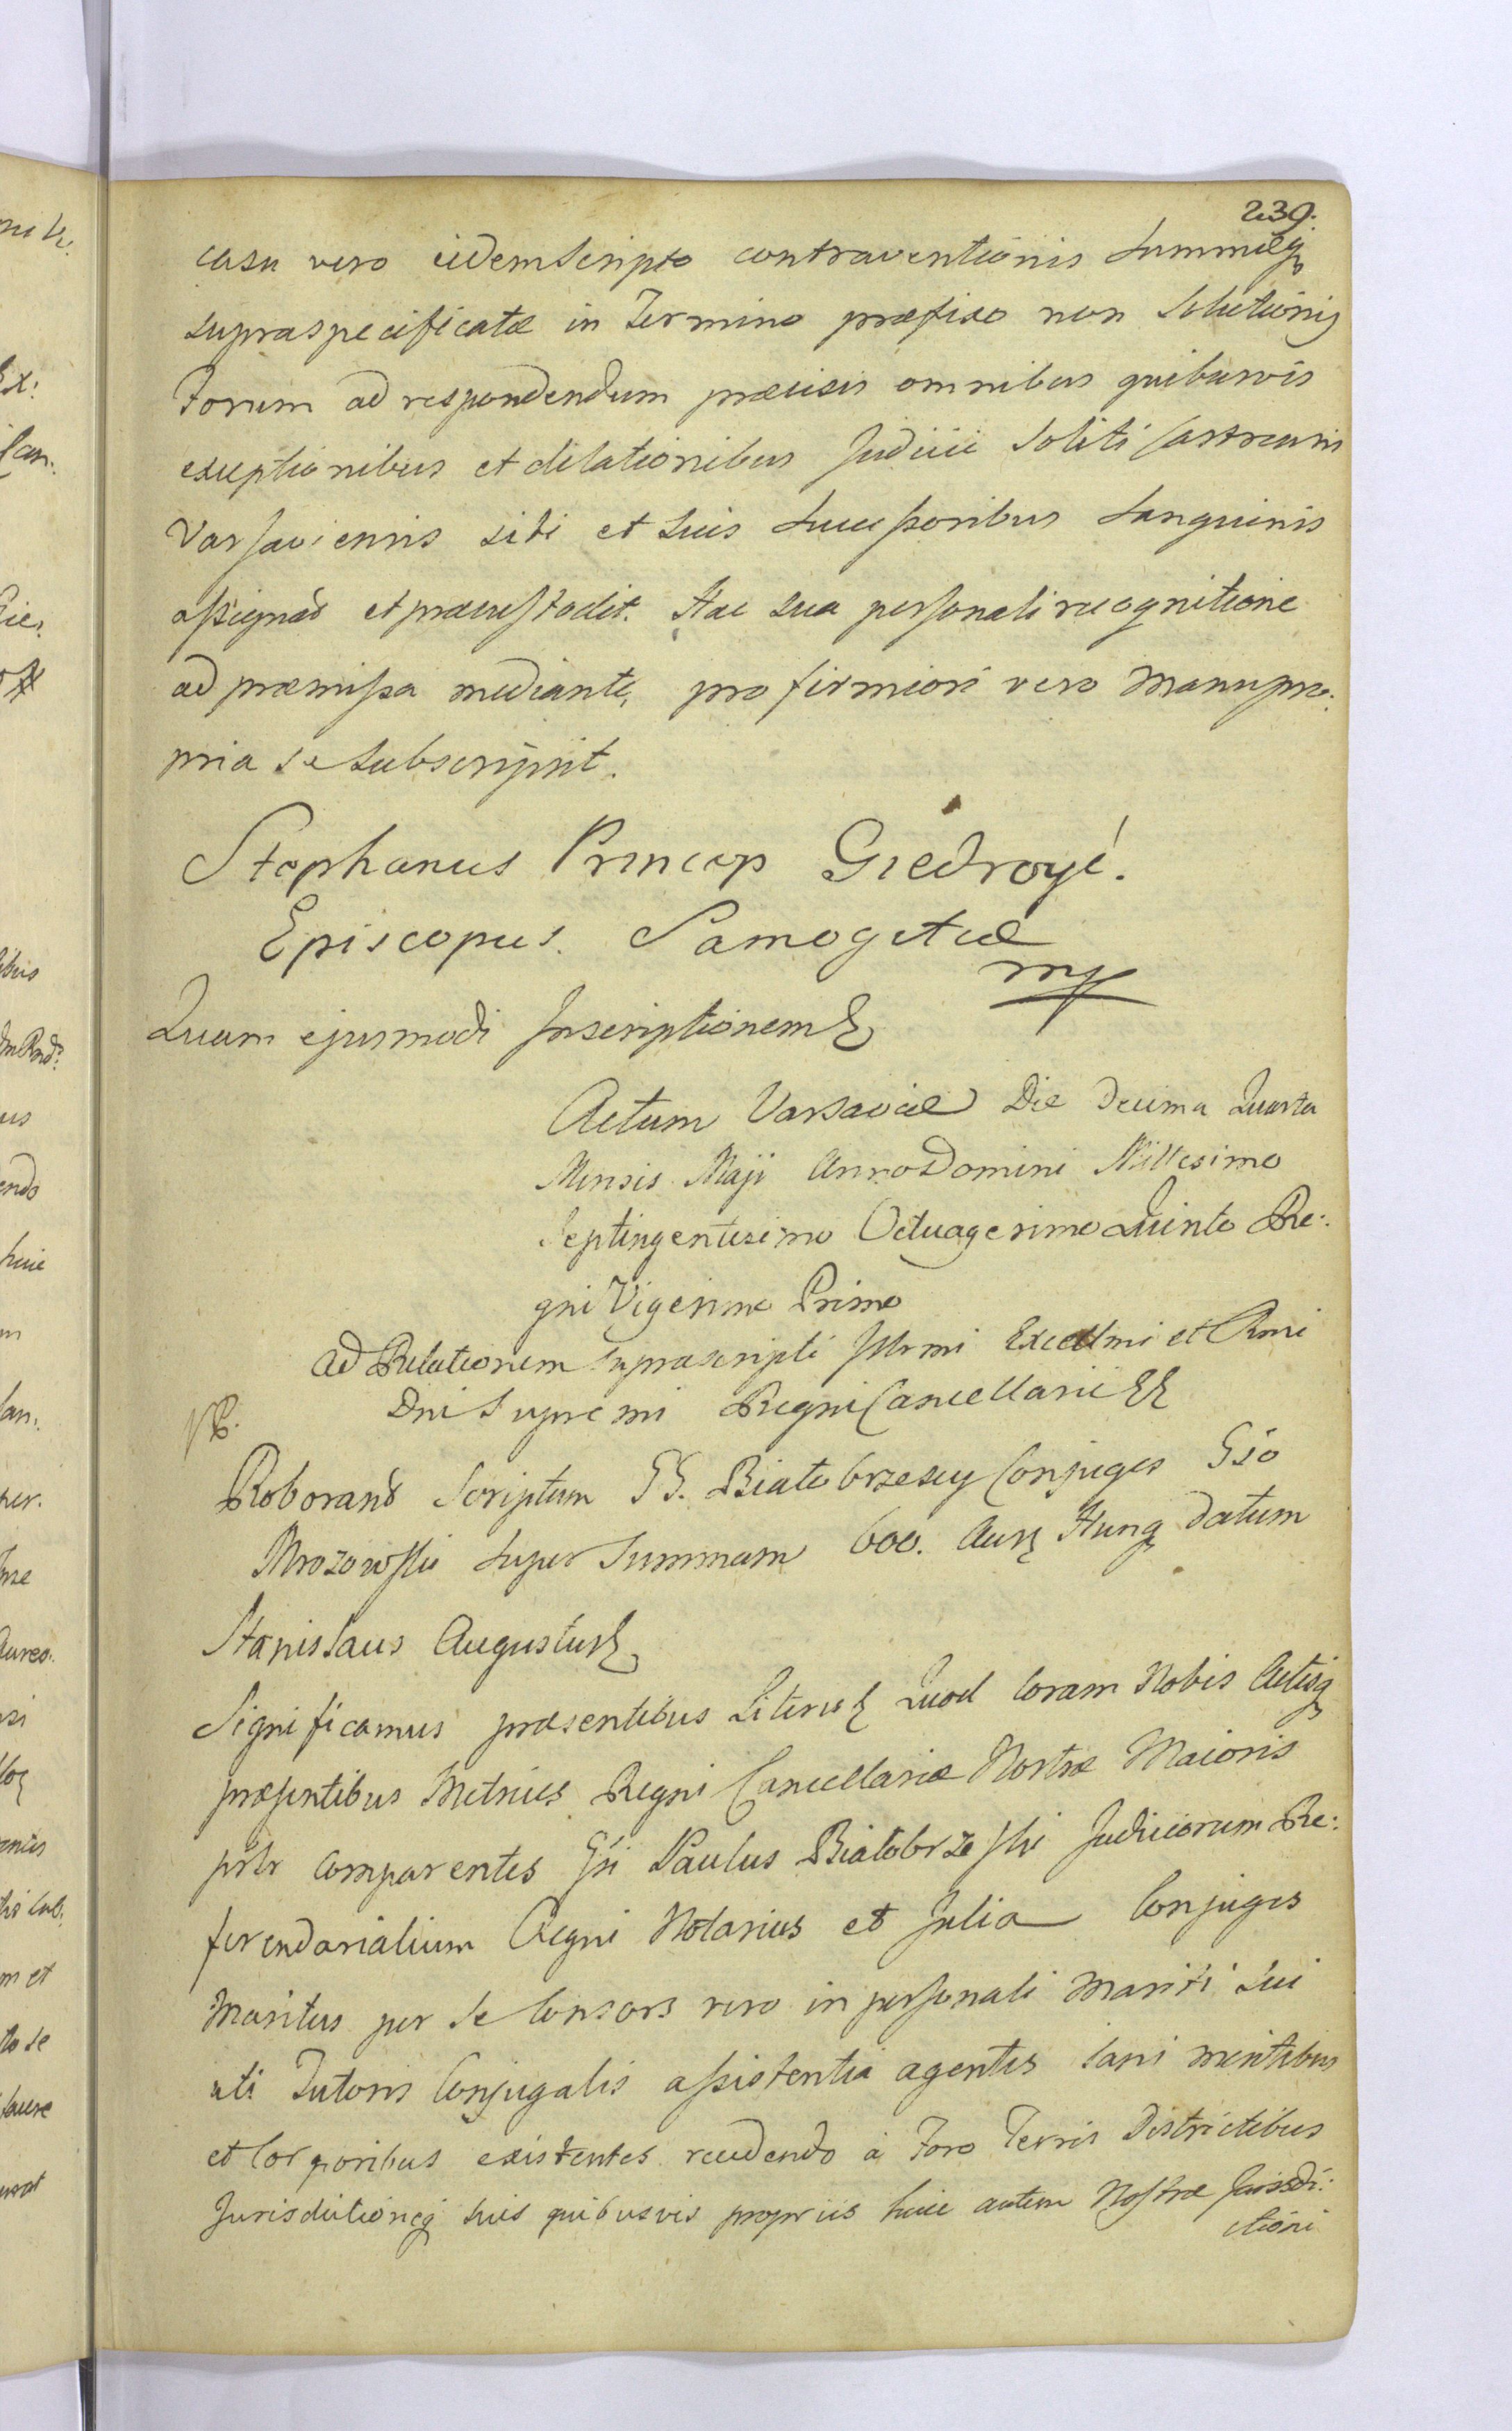 239.
casu vero eidem Scripto contraventionis Summæq
supraspecificatæ in Termino præfixo non Solutionis
Forum ad respondendum præcisis omnibus quibusvis
exceptionibus et dilationibus Judicii Soliti Castrensis
Varsaviensis sibi et Suis Successoribus Sanguinis
assignāt et præcustodit. Hac sua personali recognitione
ad præmissa mediante, pro firmiori vero Manu pro:
pria se Subscripsit.
Stephanus Princeps Giedroyć.
Episcopus. Samogitiæ
mp
Quam ejusmodi Inscriptionem &
Actum Varsaviæ Die Decima Quarta
Mensis Maji Anno Domini Millesimo
Septingentesimo Octuagesimo Quinto Re:
gni Vigesimo Primo
Ad Relationem Suprascripti Illrmi Excellmi et Rmi
Dni Supremi Regni Cancellarii &&
Roborans Scriptum GG. Białobrzescy Conjuges Gso
Mrozowski super Summam 600. Aur Hung datum
Stanislaus Augustus &
Significamus præsentibus Literis & Quod Coram Nobis Actisq
præsentibus Metrices Regni Cancellariæ Nostræ Maioris
prlr comparentes Gsi Paulus Białobrzeski Judiciorum Re:
ferendarialium Regni Notarius et Julia Conjuges
Maritus per se Consors vero in personali Mariti Sui
uti Tutoris Conjugalis assistentia agentes sani mentibus
et Corporibus existentes recedendo à Foro Terris Districtibus
Jurisdictioneq suis quibusvis propriis huic autem Nostræ Jurisdi:
ctioni